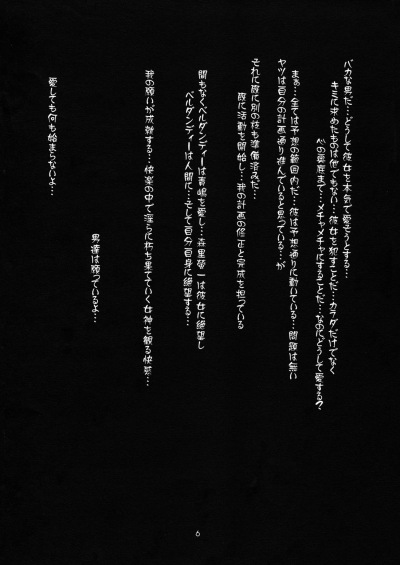 バカな男だ…どうして彼女を本気で愛そうとする…
キミに求めたものは他でもない…彼女を犯すことだ…カラダだけでなく
心の奥底まで…メチャメチャにすることだ…なのにどうして愛する?
まぁ…全ては予想の範囲内だ…彼は予想通りに動いている…問題は無い
ヤツは自分の計画通り進んでいると思っている…が
それに既に別の枝も準備済みだ…
既に活動を開始し…我の計画の修正と完成を担っている
間もなくベルダンディーは真嶋を愛し…森里螢一は彼女に絶望し
ベルダンディーは人間に…そして自分自身に絶望する…
我の願いが成就する…快楽の中で淫らに朽ち果てていく女神を観る快感…
男達は願っているよ…
愛しても何も始まらないよ…
6